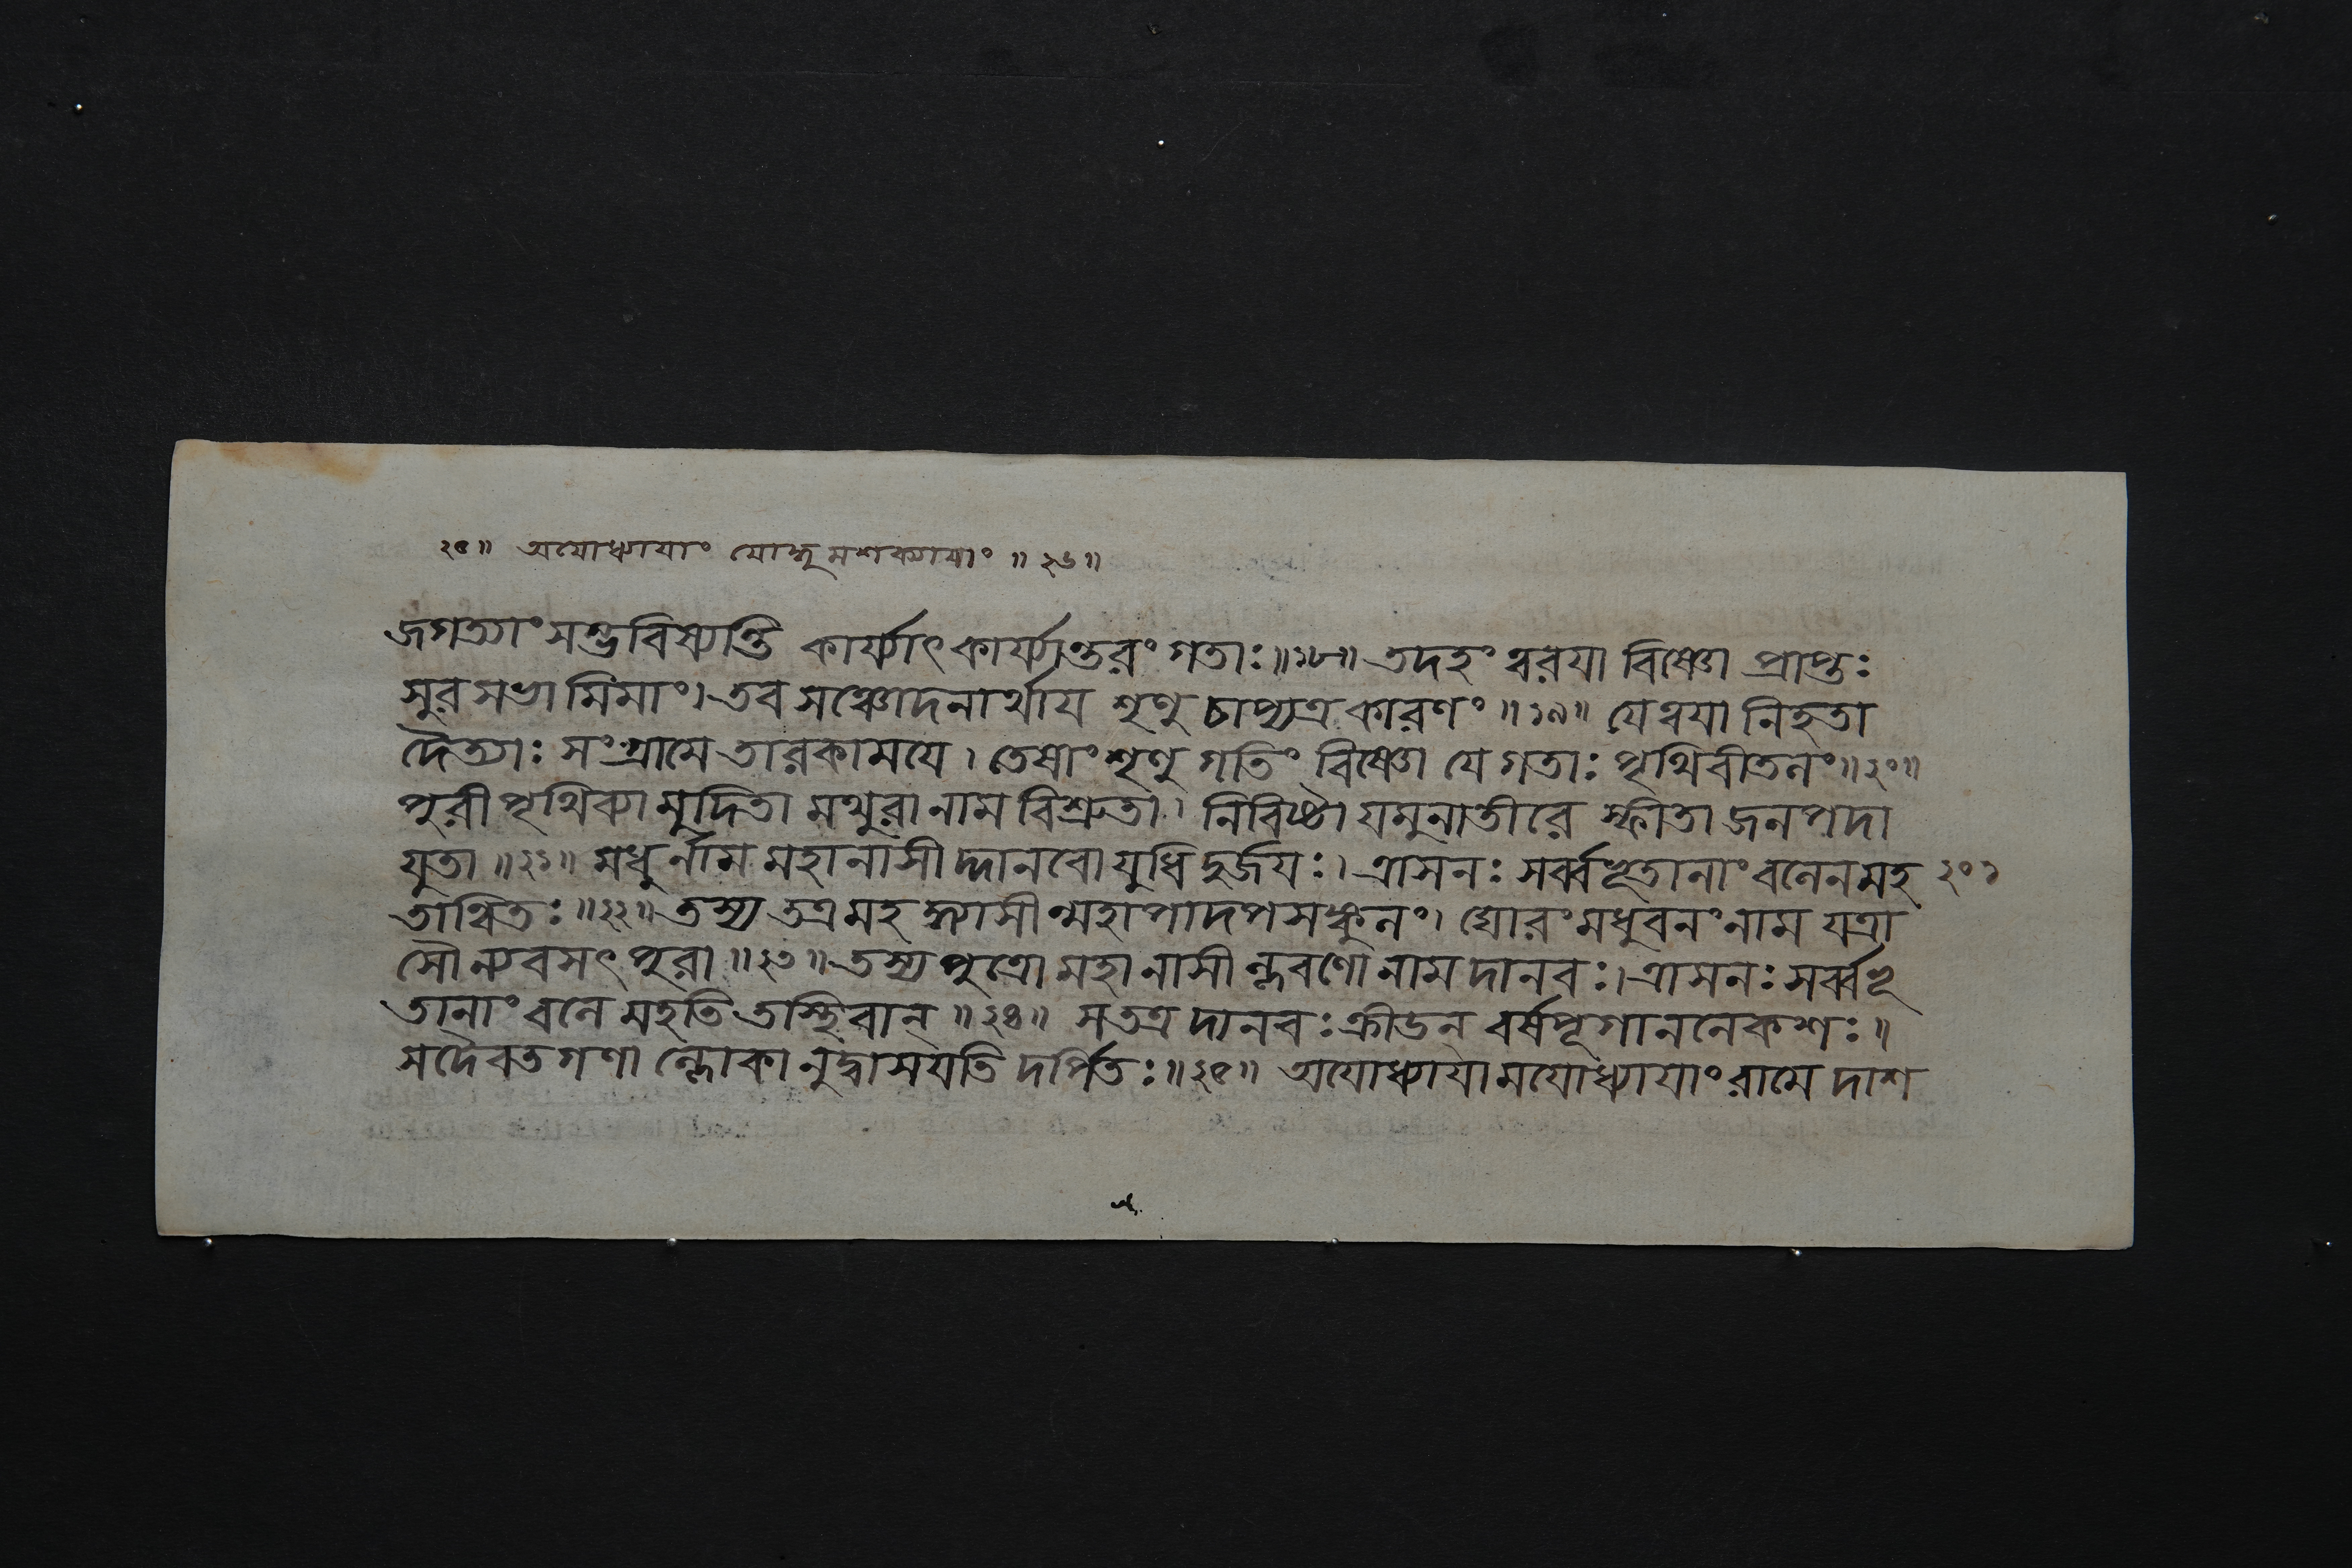 ২৫॥ অযোধ্যাযাং যোদ্ধুমশক্যাযাং ॥২৬॥
জগত্যাং সম্ভবিষ্যন্তি কার্য্যাৎ কার্য্যান্তরং গতাঃ॥১৮॥ তদহং ত্বরযা বিষ্ণো প্রাপ্তঃ
সুরসভামিমাং। তব সঞ্চোদনার্থায শৃণু চাপ্যত্র কারণং॥১৯॥ যে ত্বযা নিহতা
দৈত্যাঃ সংগ্রামে তারকামযে। তেষাং শৃণু গতিং বিষ্ণো যে গতাঃ পৃথিবীতলং॥২০॥
পুরী পৃথিব্যা মুদিতা মথুরা নাম বিশ্রুতা। নিবিষ্টা যমুনাতীরে স্ফীতা জনপদা
যুতা॥২১॥ মধুর্নাম মহানাসীদ্দানবো যুধি দুর্জযঃ। ত্রাসনঃ সর্ব্বভূতানাং বলেন মহ ২০১
তান্বিতঃ॥২২॥ তস্য তত্র মহচ্চাসীন্মহাপাদপসঙ্কুলং। ঘোরং মধুবনং নাম যত্রা
সৌ ন্যবসৎ পুরা॥২৩॥ তস্য পুত্রো মহানাসীল্লবণো নাম দানবঃ। ত্রাসনঃ সর্ব্বভূ
তানাং বলে মহতি তস্থিবান্॥২৪॥ স তত্র দানবঃ ক্রীডন্ বর্ষপূগাননেকশঃ॥
স দৈবতগণাল্লোকানুদ্বাসযতি দর্পিতঃ॥২৫॥ অযোধ্যাযামযোধ্যাযাং রামে দাশ